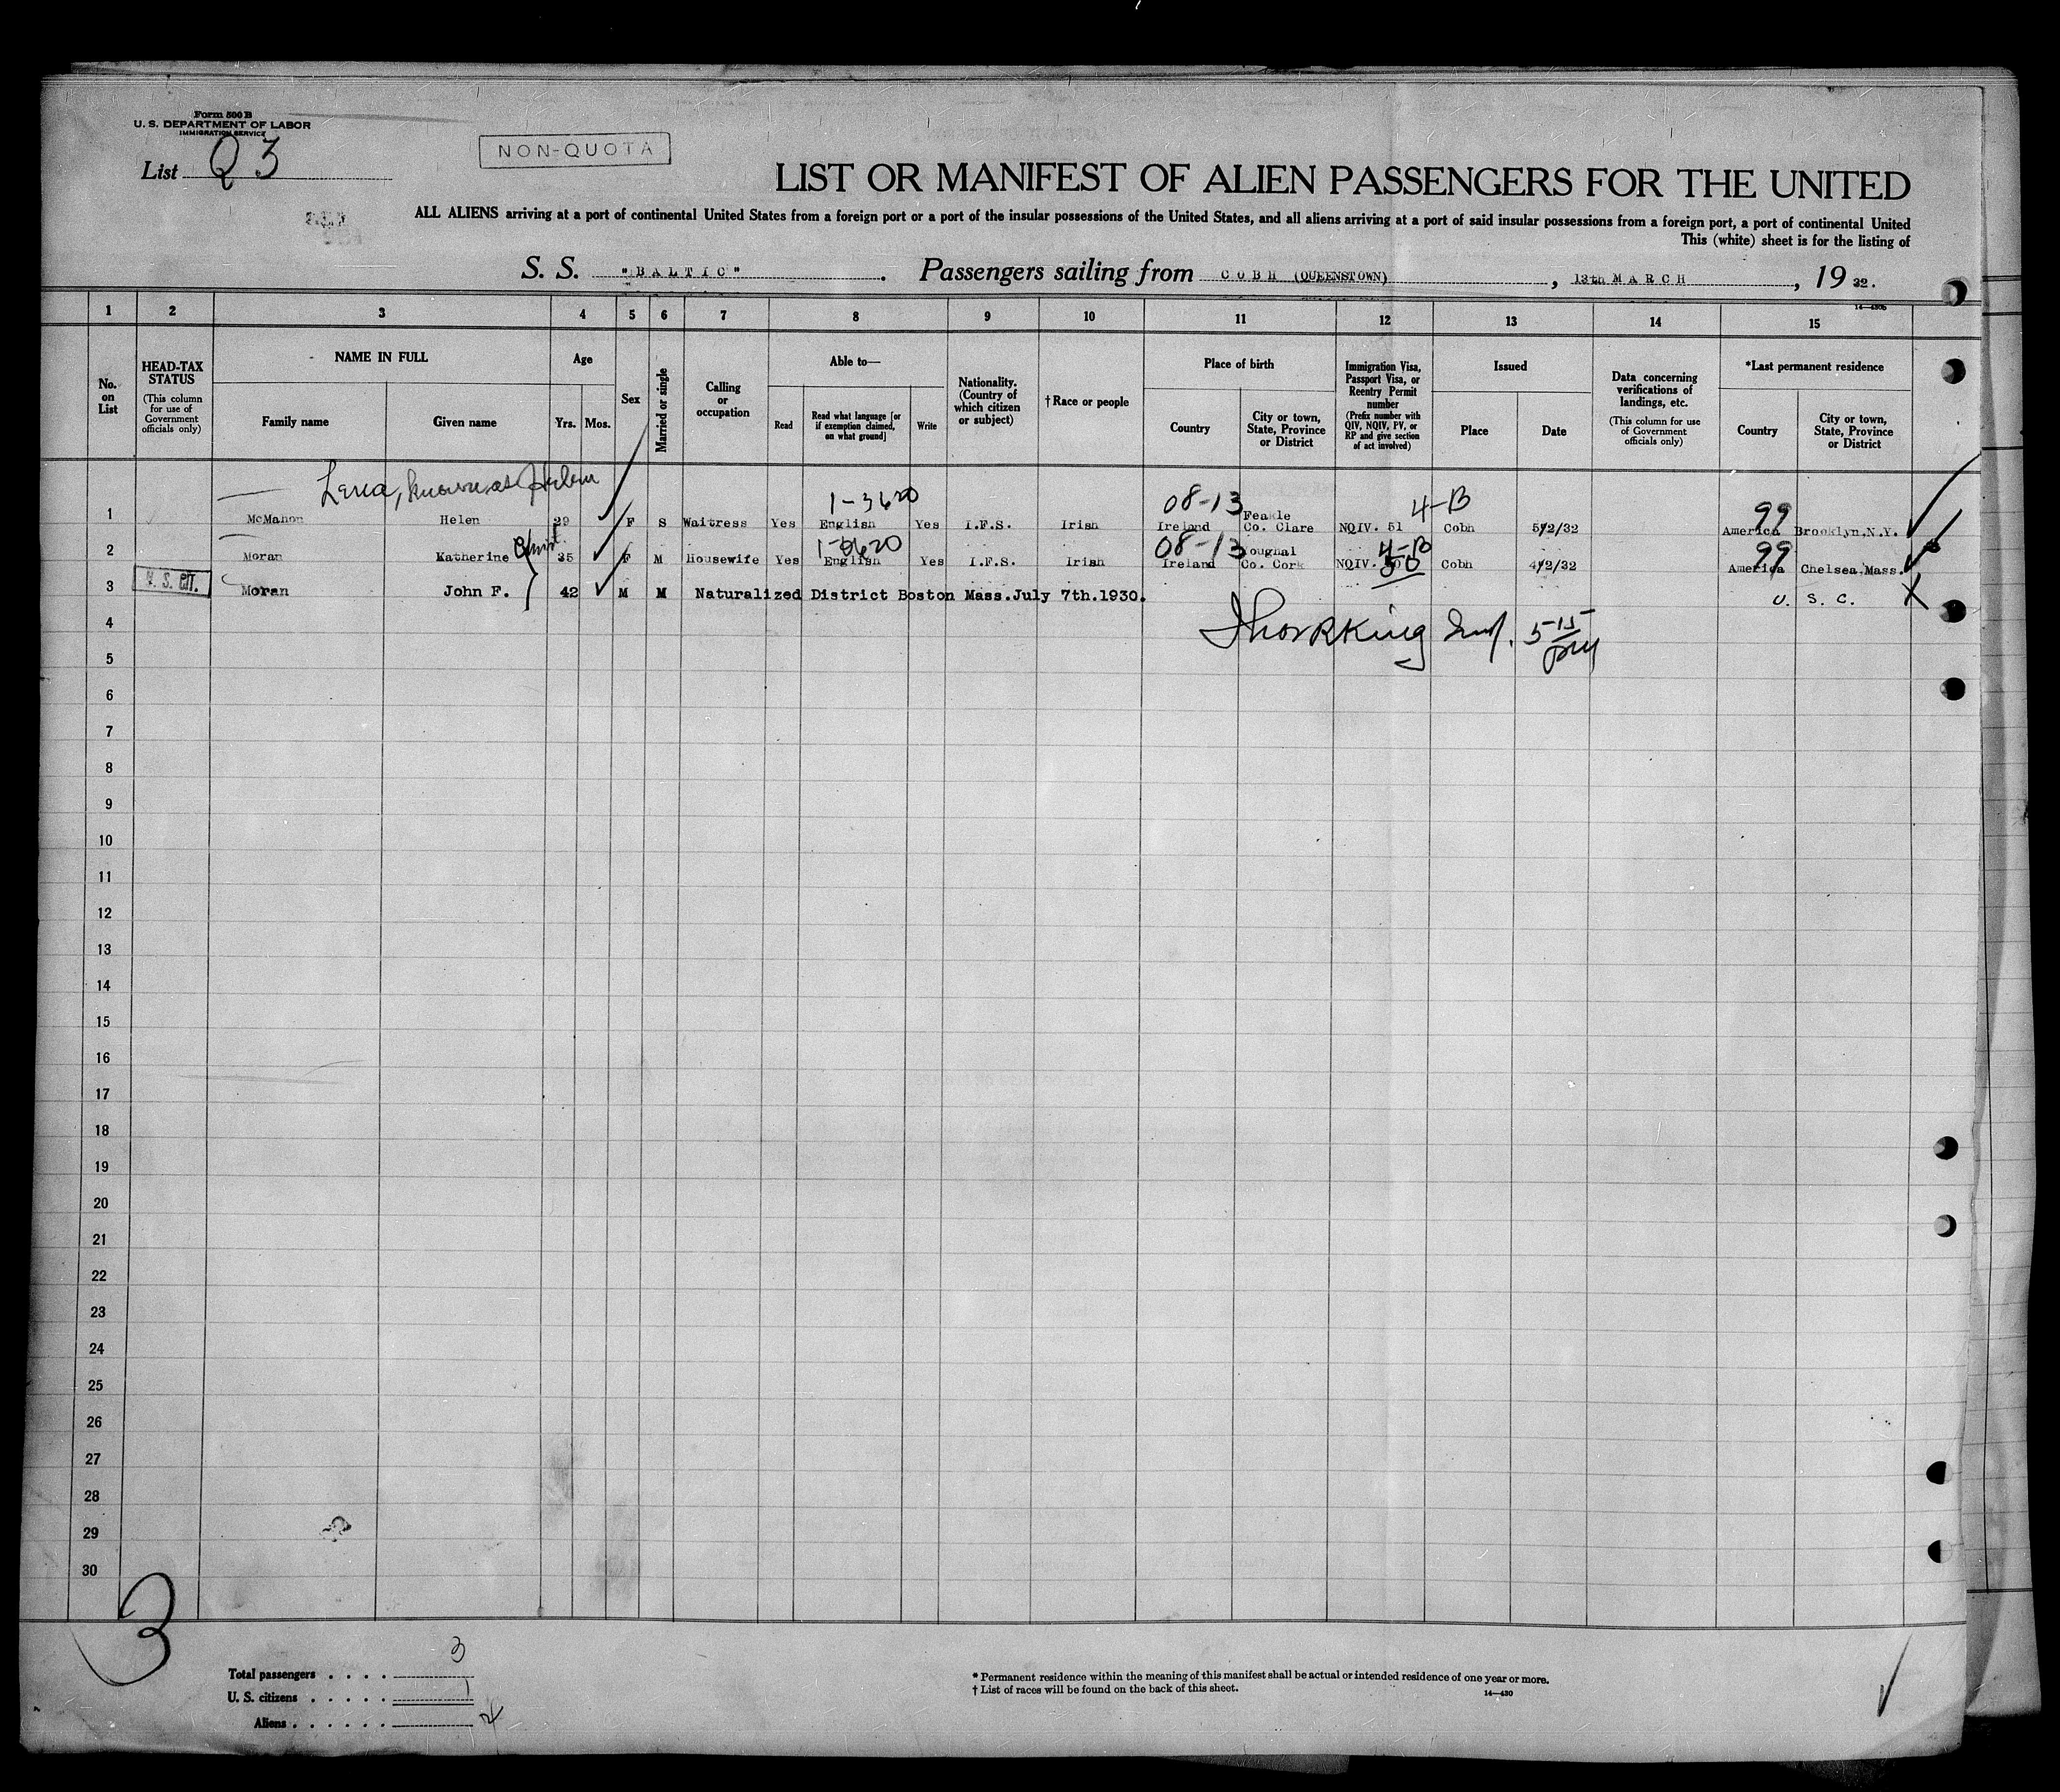 Form 500 B
U. S. DEPARTMENT OF LABOR
IMMIGRATION SERVICE
List Q 3
NON-QUOTA
LIST OR MANIFEST OF ALIEN PASSENGERS FOR THE UNITED
ALL ALIENS arriving at a port of continental United States from a foreign port or a port of the insular possessions of the United States, and all aliens arriving at a port of said insular possessions from a foreign port, a port of continental United
This (white) sheet is for the listing of
S. S. "BALTIC". Passengers sailing from COBH (QUEENSTOWN), 13th MARCH, 19 32.
14—430b
1 2 3 4 5 6 7 8 9 10 11 12 13 14 15
No. on List
HEAD-TAX STATUS
(This column for use of Government officials only)
NAME IN FULL
Family name
Given name
Age
Yrs. Mos.
Sex
Married or single
Calling or occupation
Able to—
Read
Read what language [or if exemption claimed, on what ground]
Write
Nationality. (Country of which citizen or subject)
† Race or people
Place of birth
Country
City or town, State, Province or District
Immigration Visa, Passport Visa, or Reentry Permit number
(Prefix number with QIV, NQIV, PV, or RP and give section of act involved)
Issued
Place
Date
Data concerning verifications of landings, etc.
(This column for use of Government officials only)
*Last permanent residence
Country
City or town, State, Province or District
Lena, known as Helen
1-3620 08-13 4-B 99
1 McMahon Helen 29 F S Waitress Yes English Yes I.F.S. Irish Ireland Feakle Co. Clare NQIV. 51 Cobh 5/2/32 America Brooklyn,N.Y.
1-3620 08-13 4-B 99
2 Moran Katherine 35 F M Housewife Yes English Yes I.F.S. Irish Ireland Youghal Co. Cork NQIV. 50 Cobh 4/2/32 America Chelsea,Mass.
3 U. S. CIT. Moran John F. 42 M M Naturalized District Boston Mass.July 7th.1930. U. S. C. X
4
5
6
7
8
9
10
11
12
13
14
15
16
17
18
19
20
21
22
23
24
25
26
27
28
29
30
3
Total passengers . . . . 3
U. S. citizens . . . . . 1
Aliens . . . . . . 2
* Permanent residence within the meaning of this manifest shall be actual or intended residence of one year or more.
† List of races will be found on the back of this sheet.
14—430